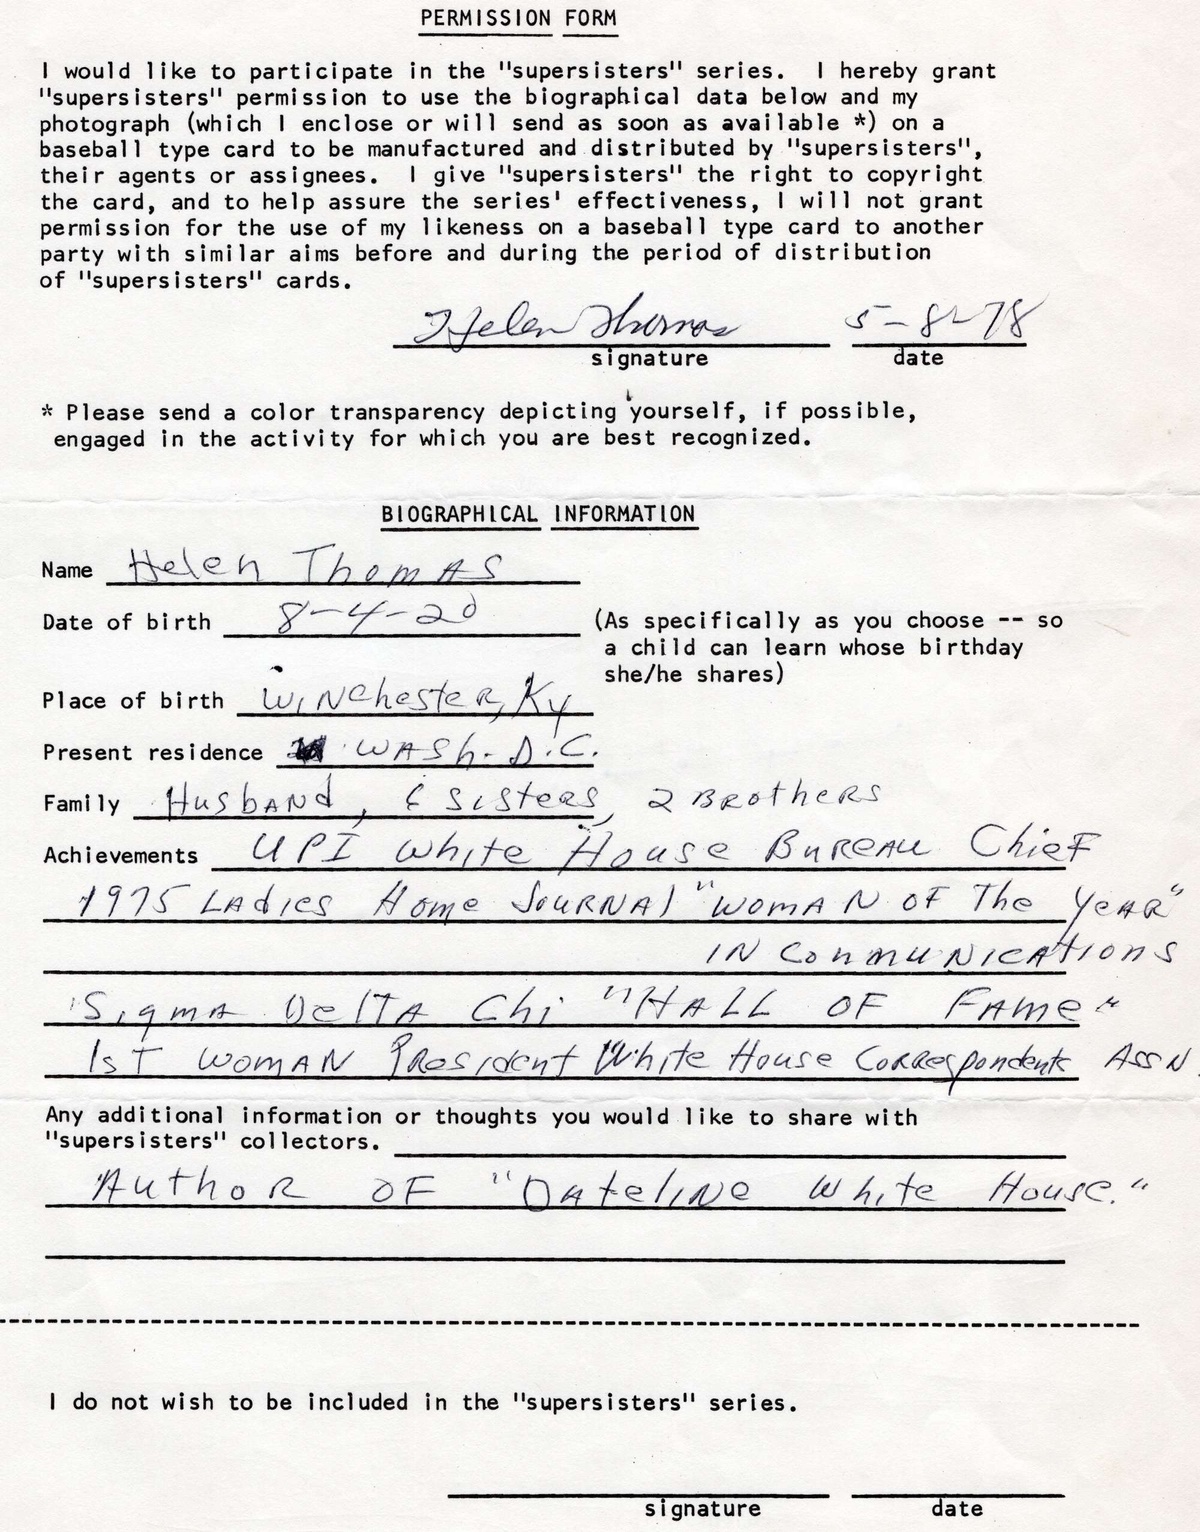 PERMISSION FORM
I would like to participate in the "supersisters" series. I hereby grant
"supersisters" permission to use the biographical data below and my
photograph (which I enclose or will send as soon as available *) on a
baseball type card to be manufactured and distributed by "supersisters",
their agents or assignees. I give "supersisters" the right to copyright
the card, and to help assure the series' effectiveness, I will not grant
permission for the use of my likeness on a baseball type card to another
party with similar aims before and during the period of distribution
of "supersisters" cards.
Helen Thomas 5-8-78
signature date
* Please send a color transparency depicting yourself, if possible,
engaged in the activity for which you are best recognized.
BIOGRAPHICAL INFORMATION
Name Helen Thomas
Date of birth 8-4-20 (As specifically as you choose -- so
a child can learn whose birthday
she/he shares)
Place of birth Winchester, Ky
Present residence Wash. D.C.
Family Husband, 6 Sisters, 2 Brothers
Achievements UPI White House Bureau Chief
1975 Ladies Home Journal "Woman of The Year"
in Communications
Sigma Delta Chi "Hall of Fame"
1st Woman President White House Correspondents Assn
Any additional information or thoughts you would like to share with
"supersisters" collectors.
Author of "Dateline White House."
I do not wish to be included in the "supersisters" series.
signature date